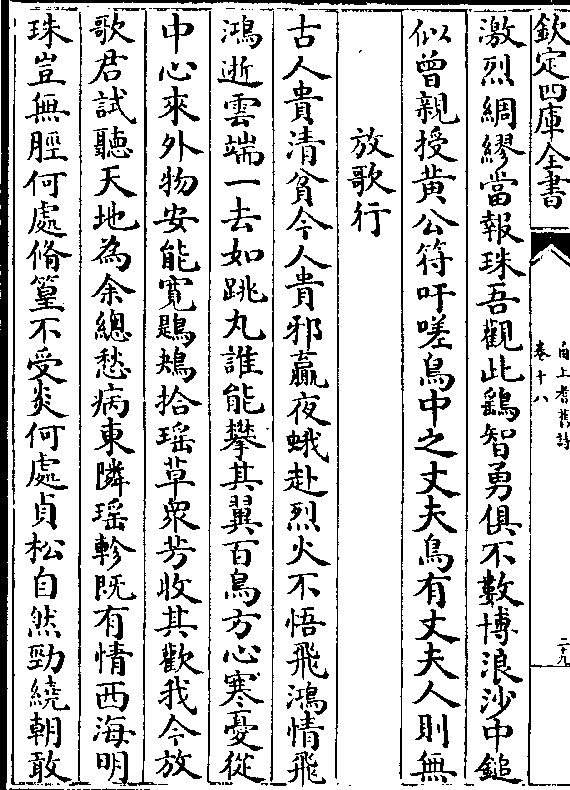 欽定四庫全書
甬上耆舊詩
卷十八
二十九
激烈綢繆當報珠吾觀此鷂智勇俱不數博浪沙中鎚
似曾親授黃公符吁嗟鳥中之丈夫鳥有丈夫人則無
放歌行
古人貴清貧今人貴邪贏夜蛾赴烈火不悟飛鴻情飛
鴻逝雲端一去如跳丸誰能攀其翼百鳥方心寒憂從
中心來外物安能寬鶗鴂拾瑶草衆芳收其歡我今放
歌君試聽天地為余總愁病東隣瑶軫既有情西海明
珠豈無脛何處脩篁不受炎何處貞松自然勁繞朝敢